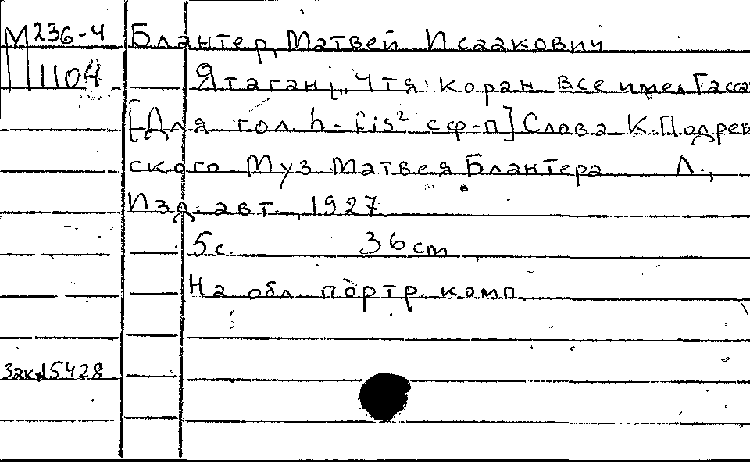 М236-4
1104
Блантер, Матвей Исаакович
Ятаган; "Чтя коран все имел Гасса
[Для гол. h-fis² с ф-п] Слова К. Подрев-
ского Муз Матвея Блантера Л.,
Изд. авт., 1927
5 с. 36 cm
На обл. портр. комп.
Зак. 15428